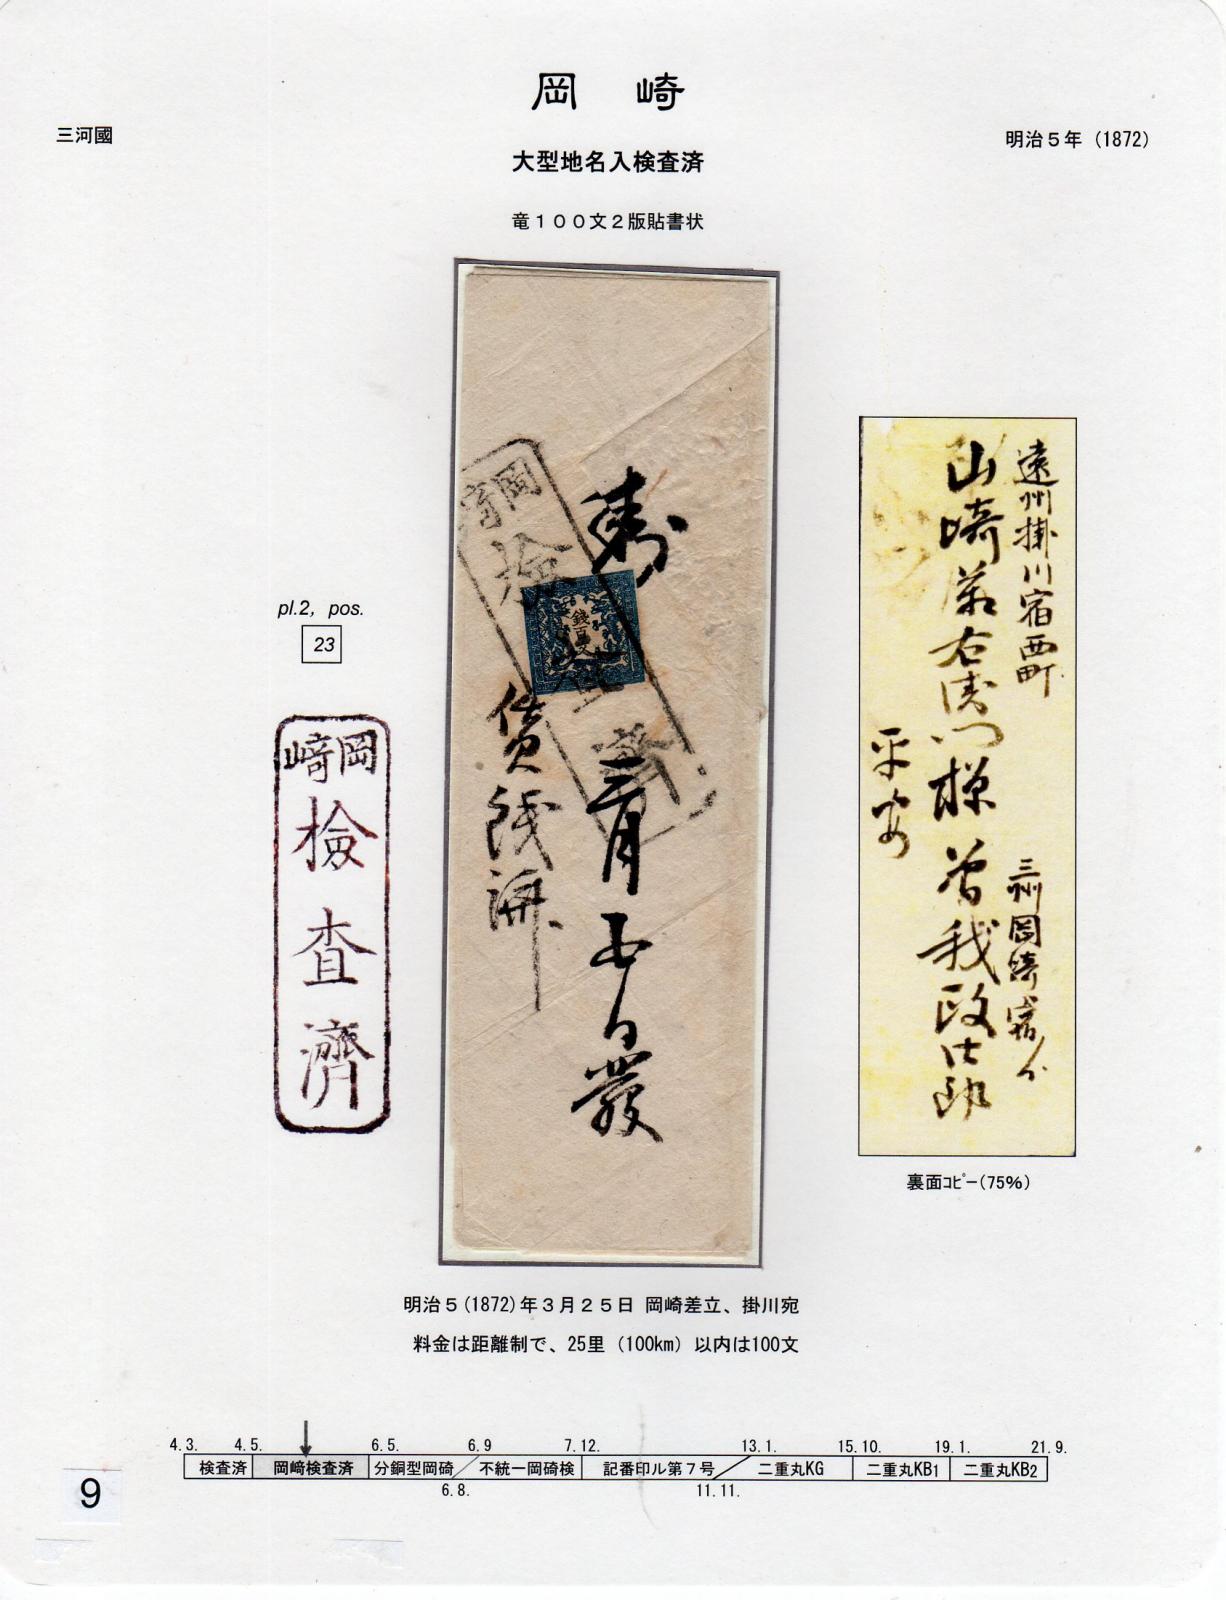 岡崎
三河國
明治5年(1872)
大型地名入検査済
竜100文2版貼書状
pl.2, pos.
23
岡﨑
檢査濟
岡﨑
檢査濟
錢百文
三月
日發
賃錢済
遠州掛川宿西町
山崎萬右衛門様
平安
三州岡崎宿
曽我政
裏面コピー(75%)
明治5(1872)年3月25日 岡崎差立、掛川宛
料金は距離制で、25里(100km)以内は100文
4.3. 4.5. 6.5. 6.9 7.12. 13.1. 15.10. 19.1. 21.9.
検査済 岡﨑検査済 分銅型岡碕 不統一岡碕検 記番印ル第7号 二重丸KG 二重丸KB1 二重丸KB2
6.8. 11.11.
9